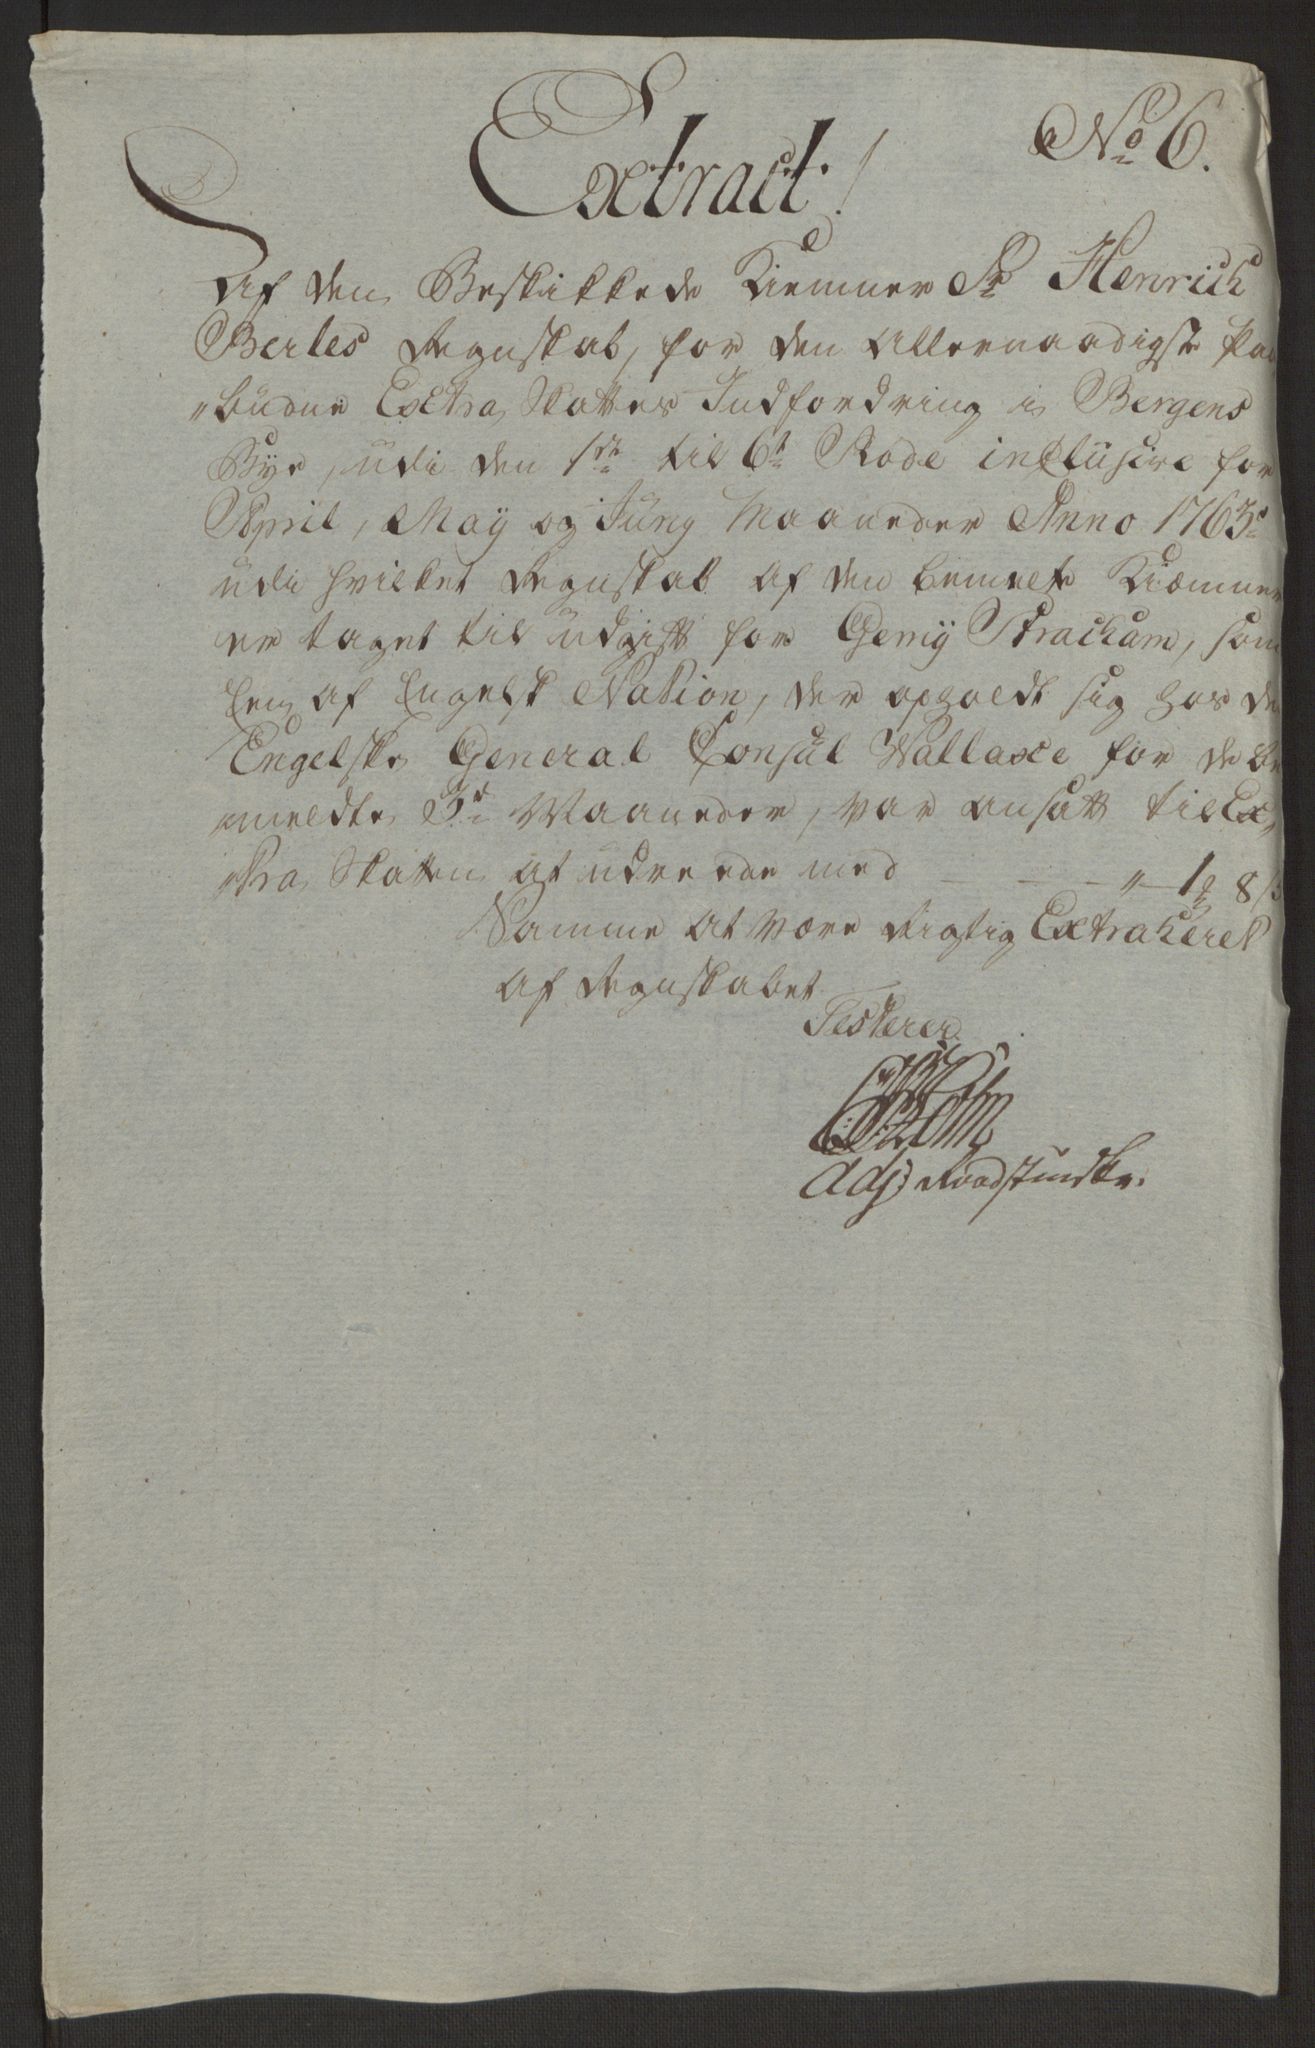 No 6.
Extract!
Af den Beskikkede Kiemner Sr Henrich
Berles Regnskab, for den Allernaadigst Paa
„budne Extra Skattes Indfordring i Bergens
Bye, udi den 1ste til 6te Rode inclusive for
April, Maÿ og Junÿ Maaneder Anno 1763.
udi hvilket Regnskab af den bemelte Kiæmner
er taget til udgift for Gemÿ Stracham, som
Een af Engelsk Nation, der opholdt sig hos de
Engelske General Consul Wallace for de be
„meldte 3de Maaneder, var ansatt til Ex„
„tra Skatten at udreede med - - - „ 1 8 s
Samme at være Rigtig Extraheret
af Regnskabet
Testerer
Holm
Adj: Raadstueskr.